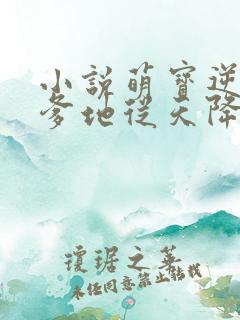 小說萌寶逆
爹地從天降
瓊琚之華
未经同意禁止转载